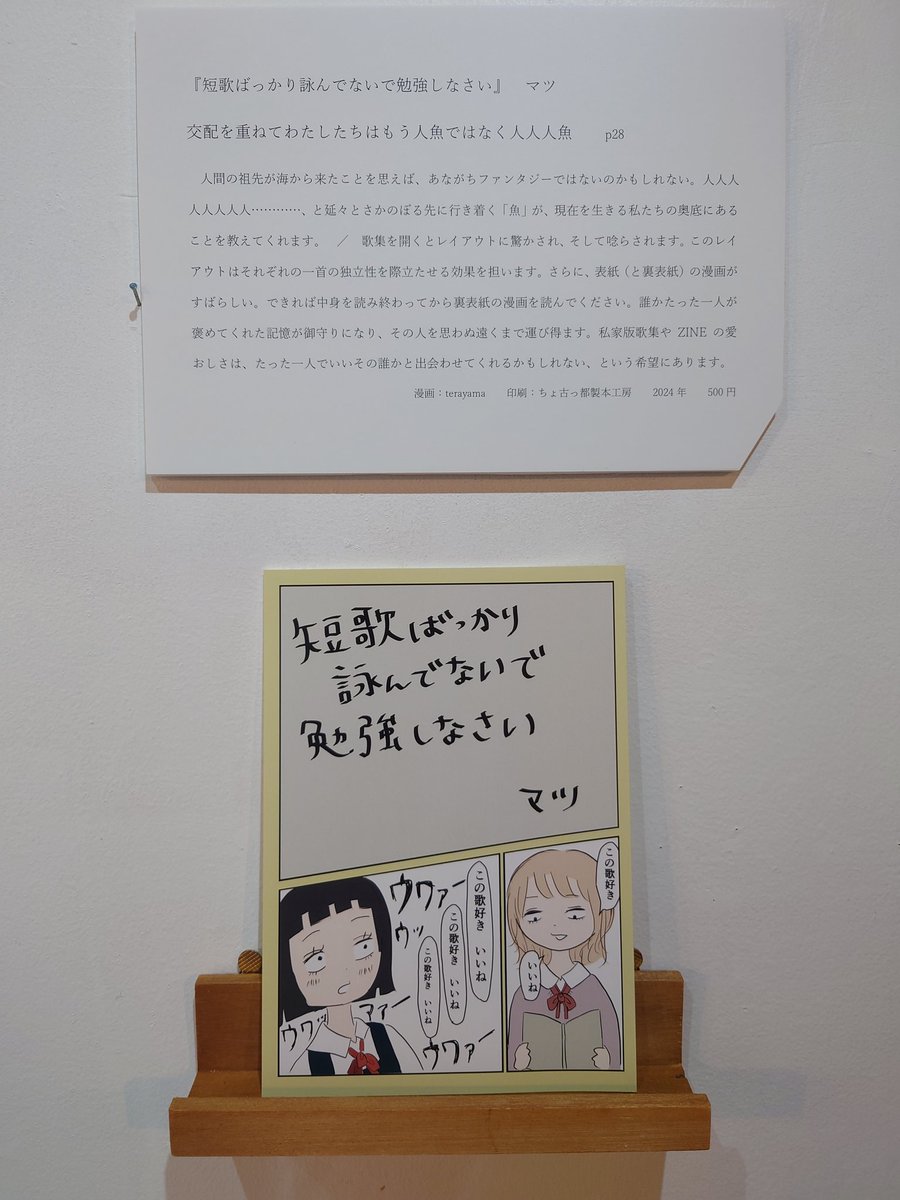 『短歌ばっかり詠んでないで勉強しなさい』　マツ
交配を重ねてわたしたちはもう人魚ではなく人人人魚　p28
人間の祖先が海から来たことを思えば、あながちファンタジーではないのかもしれない。人人人
人人人人人…………、と延々とさかのぼる先に行き着く「魚」が、現在を生きる私たちの奥底にある
ことを教えてくれます。　／　歌集を開くとレイアウトに驚かされ、そして唸らされます。このレイ
アウトはそれぞれの一首の独立性を際立たせる効果を担います。さらに、表紙（と裏表紙）の漫画が
すばらしい。できれば中身を読み終わってから裏表紙の漫画を読んでください。誰かたった一人が
褒めてくれた記憶が御守りになり、その人を思わぬ遠くまで運び得ます。私家版歌集や ZINE の愛
おしさは、たった一人でいいその誰かと出会わせてくれるかもしれない、という希望にあります。
漫画：terayama　印刷：ちょ古っ都製本工房　2024 年　500 円
短歌ばっかり
詠んでないで
勉強しなさい
マツ
この歌好き
いいね
この歌好き　いいね
この歌好き　いいね
この歌好き　いいね
ウワァー
ウッ
ウワッ
アァー
ウワァー